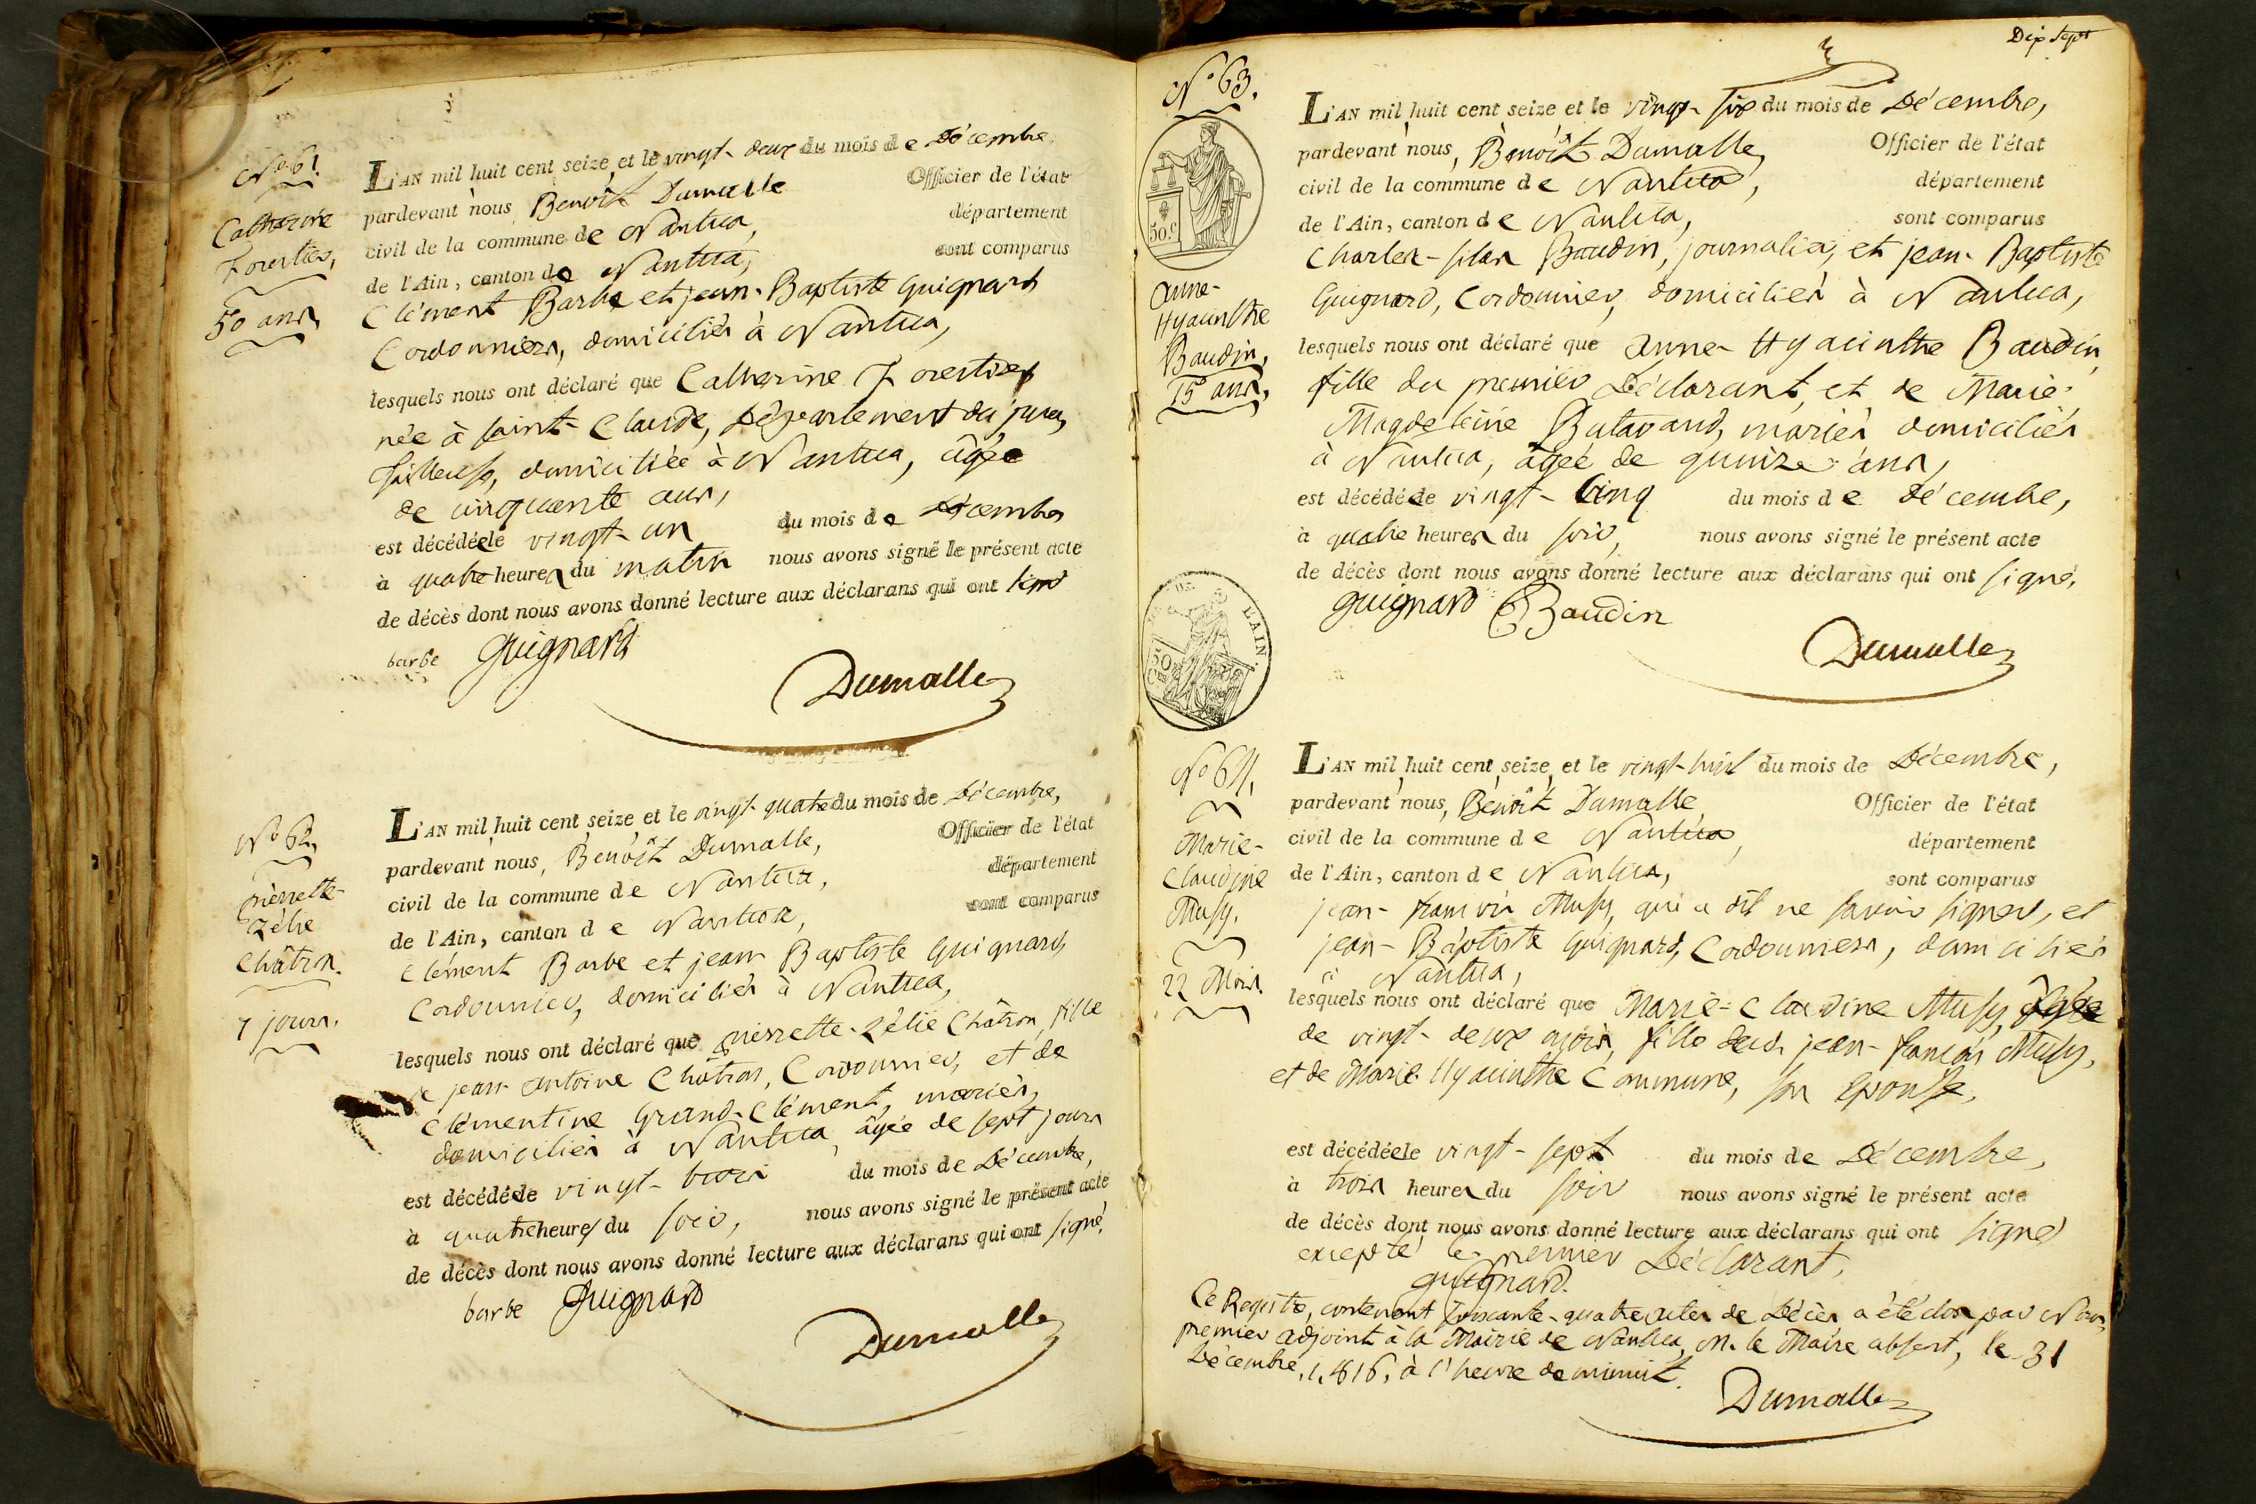 N.º 61.
Catherine
Forestier,
50 ans
L'AN mil huit cent seize et le vingt-deux du mois de Décembre,
pardevant nous, Benoît Dumalle Officier de l'état
civil de la commune de Nantua, département
de l'Ain, canton de Nantua, sont comparus
Clément Barbe et jean-Baptiste Guignard
Cordonniers, domiciliés à Nantua,
lesquels nous ont déclaré que Catherine Forestier,
née à saint-Claude, Département du jura,
domiciliée à Nantua, âgée
de cinquante ans,
est décédée le vingt-un du mois de Décembre
à quatre heures du matin nous avons signé le présent acte
de décès dont nous avons donné lecture aux déclarans qui ont signé
barbe Guignard
Dumalle
N.º 62,
pierrette-
Zélie
Châtron.
7 jours.
L'AN mil huit cent seize et le vingt-quatre du mois de Décembre,
pardevant nous, Benoît Dumalle, Officier de l'état
civil de la commune de Nantua, département
de l'Ain, canton de Nantua, sont comparus
Clément Barbe et jean Baptiste Guignard,
Cordonniers, domiciliés à Nantua,
lesquels nous ont déclaré que pierrette-Zélie Châtron, fille
de jean-antoine Châtron, Cordonnier, et de
Clémentine Grand-Clément, mariés,
domiciliés à Nantua, âgée de sept jours
est décédée le vingt-trois du mois de Décembre,
à quatre heures du soir, nous avons signé le présent acte
de décès dont nous avons donné lecture aux déclarans qui ont signé,
barbe Guignard
Dumalle
Dix sept
N.º 63.
50.c
anne-
Hyacinthe
Baudin,
15 ans,
L'AN mil huit cent seize et le vingt-six du mois de Décembre,
pardevant nous, Benoît Dumalle, Officier de l'état
civil de la commune de Nantua, département
de l'Ain, canton de Nantua, sont comparus
Charles- Baudin, journalier, et jean-Baptiste
Guignard, Cordonnier, domiciliés à Nantua,
lesquels nous ont déclaré que anne-Hyacinthe Baudin,
fille du premier Déclarant, et de Marie-
Magdeleine mariés domiciliés
à Nantua, âgée de quinze ans,
est décédée le vingt-Cinq du mois de décembre,
à quatre heures du soir, nous avons signé le présent acte
de décès dont nous avons donné lecture aux déclarans qui ont signé,
Guignard CBaudin
Dumalle
DE L'AIN.
50
Ces
N.º 64,
Marie-
Claudine
Musy.
22 Mois
L'AN mil huit cent seize et le vingt-huit du mois de Décembre,
pardevant nous, Benoît Dumalle Officier de l'état
civil de la commune de Nantua, département
de l'Ain, canton de Nantua, sont comparus
jean-françois Musy, qui a dit ne savoir signer, et
jean-Baptiste Guignard, Cordonniers, domiciliés
à Nantua,
lesquels nous ont déclaré que Marie-Claudine Musy, âgée
de vingt-deux mois, fille dud. jean-françois Musy,
et de Marie-Hyacinthe Commune, son Epouse,
est décédée le vingt-sept du mois de Décembre,
à trois heures du soir nous avons signé le présent acte
de décès dont nous avons donné lecture aux déclarans qui ont signé
excepté le premier Déclarant,
Guignard.
Ce Registre, contenant soixante-quatre actes de Décès a été clos par Nous,
premier adjoint à la Mairie de Nantua, M. le Maire absent, le 31
Décembre, 1,816, à l'heure de minuit.
Dumalle